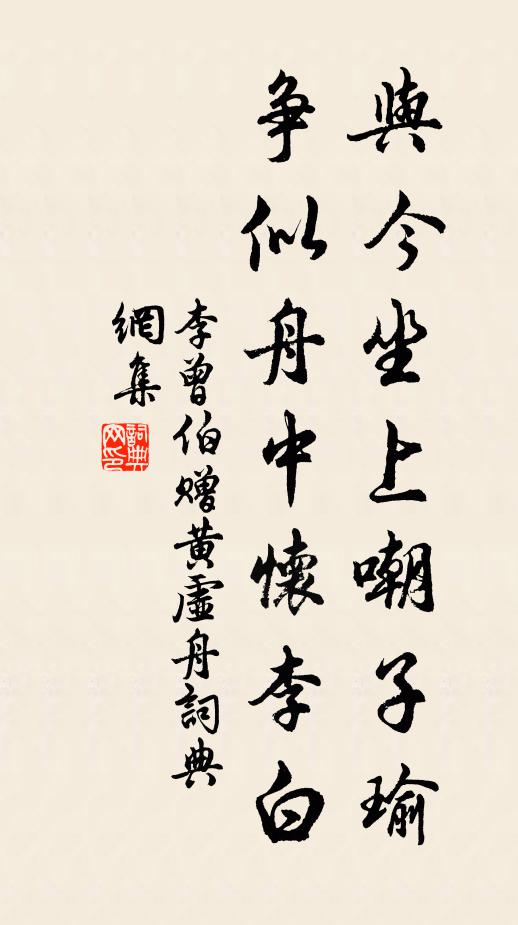 與今坐上嘲子瑜
争似舟中懷李白
李曾伯贈黄虛舟詞典
網集
詞典網印